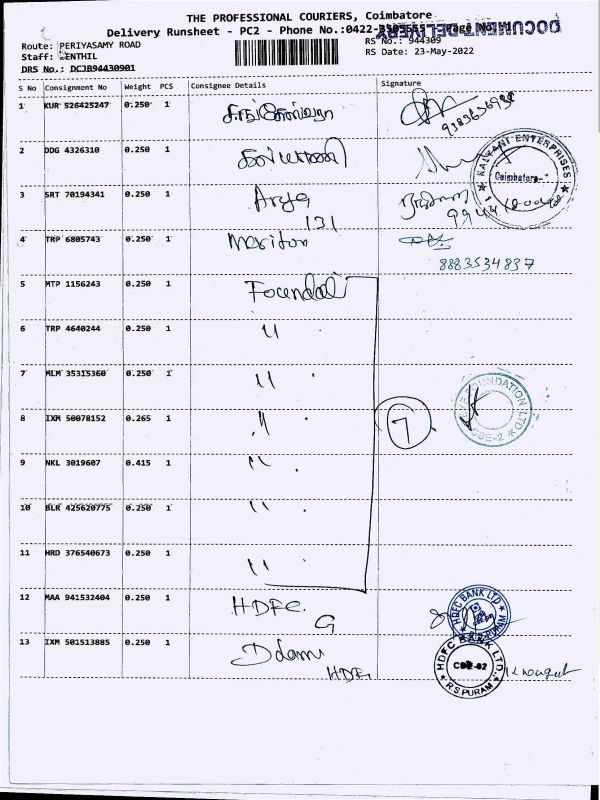 THE PROFESSIONAL COURIERS, Coimbatore
Delivery Runsheet - PC2 - Phone No.:0422-
DOCUMENT DELIVERY
Route: PERIYASAMY ROAD
RS No.: 944309
Staff: SENTHIL
RS Date: 23-May-2022
DRS No.: DCJB94430901
S No Consignment No Weight PCS Consignee Details Signature
1 KUR 526425247 0.250 1
2 DDG 4326310 0.250 1
KALYANI ENTERPRISES
Coimbatore-
3 SRT 70194341 0.250 1 Arya
131
4 TRP 6805743 0.250 1
8883534837
5 MTP 1156243 0.250 1
6 TRP 4640244 0.250 1 "
7 MLM 35315360 0.250 1 "
FOUNDATION LTD
CBE-2
8 IXM 50078152 0.265 1 " 7
9 NKL 3019607 0.415 1 "
10 BLR 425620775 0.250 1 "
11 HRD 376540673 0.250 1 "
12 MAA 941532404 0.250 1 HDFC
G
HDFC BANK LTD
13 IXM 501513885 0.250 1
HDFC BANK LTD.
R.S PURAM